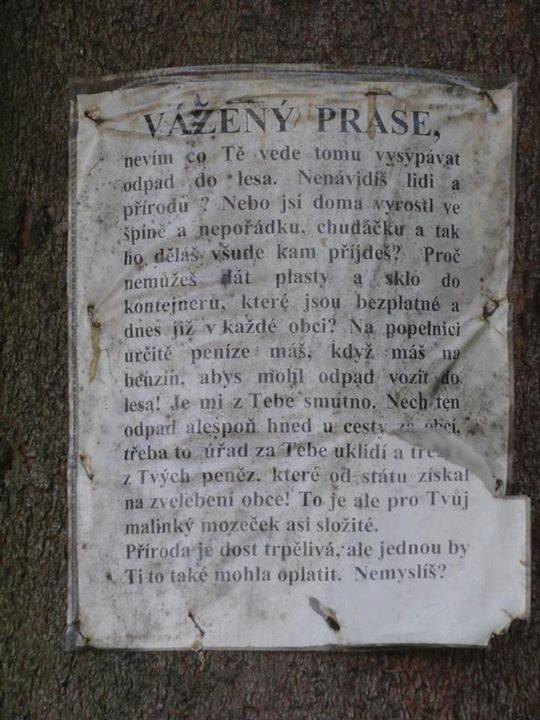 VÁŽENÝ PRASE,
nevím co Tě vede tomu vysýpávat
odpad do lesa. Nenávidíš lidi a
přírodu ? Nebo jsi doma vyrostl ve
špině a nepořádku, chudáčku a tak
ho děláš všude kam příjdeš? Proč
nemůžeš dát plasty a sklo do
kontejnerů, které jsou bezplatné a
dnes již v každé obci? Na popelnici
určitě peníze máš, když máš na
benzín, abys mohl odpad vozit do
lesa! Je mi z Tebe smutno. Nech ten
odpad alespoň hned u cesty za obcí,
třeba to úřad za Tebe uklidí a
z Tvých peněz, které od státu získal
na zvelebení obce! To je ale pro Tvůj
malinký mozeček asi složité.
Příroda je dost trpělivá, ale jednou by
Ti to také mohla oplatit. Nemyslíš?